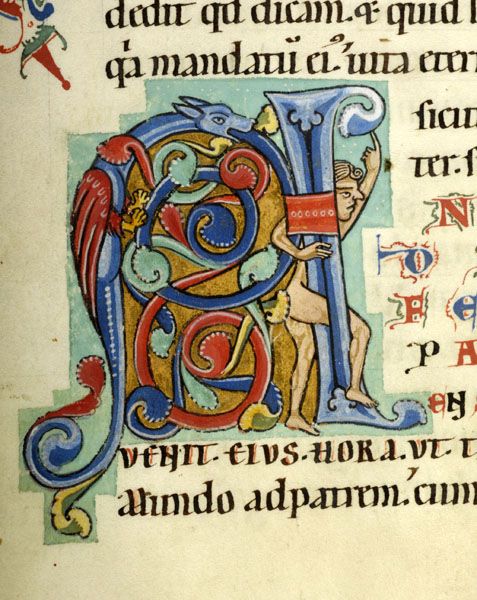 dedit qd dicam. & quid
qa mandatū ei' uita eter
sicut
ter. s
A N
D
F E
P A
EN
VENIT · EIVS · HORA · VT · T
Mundo adpatrem. cum